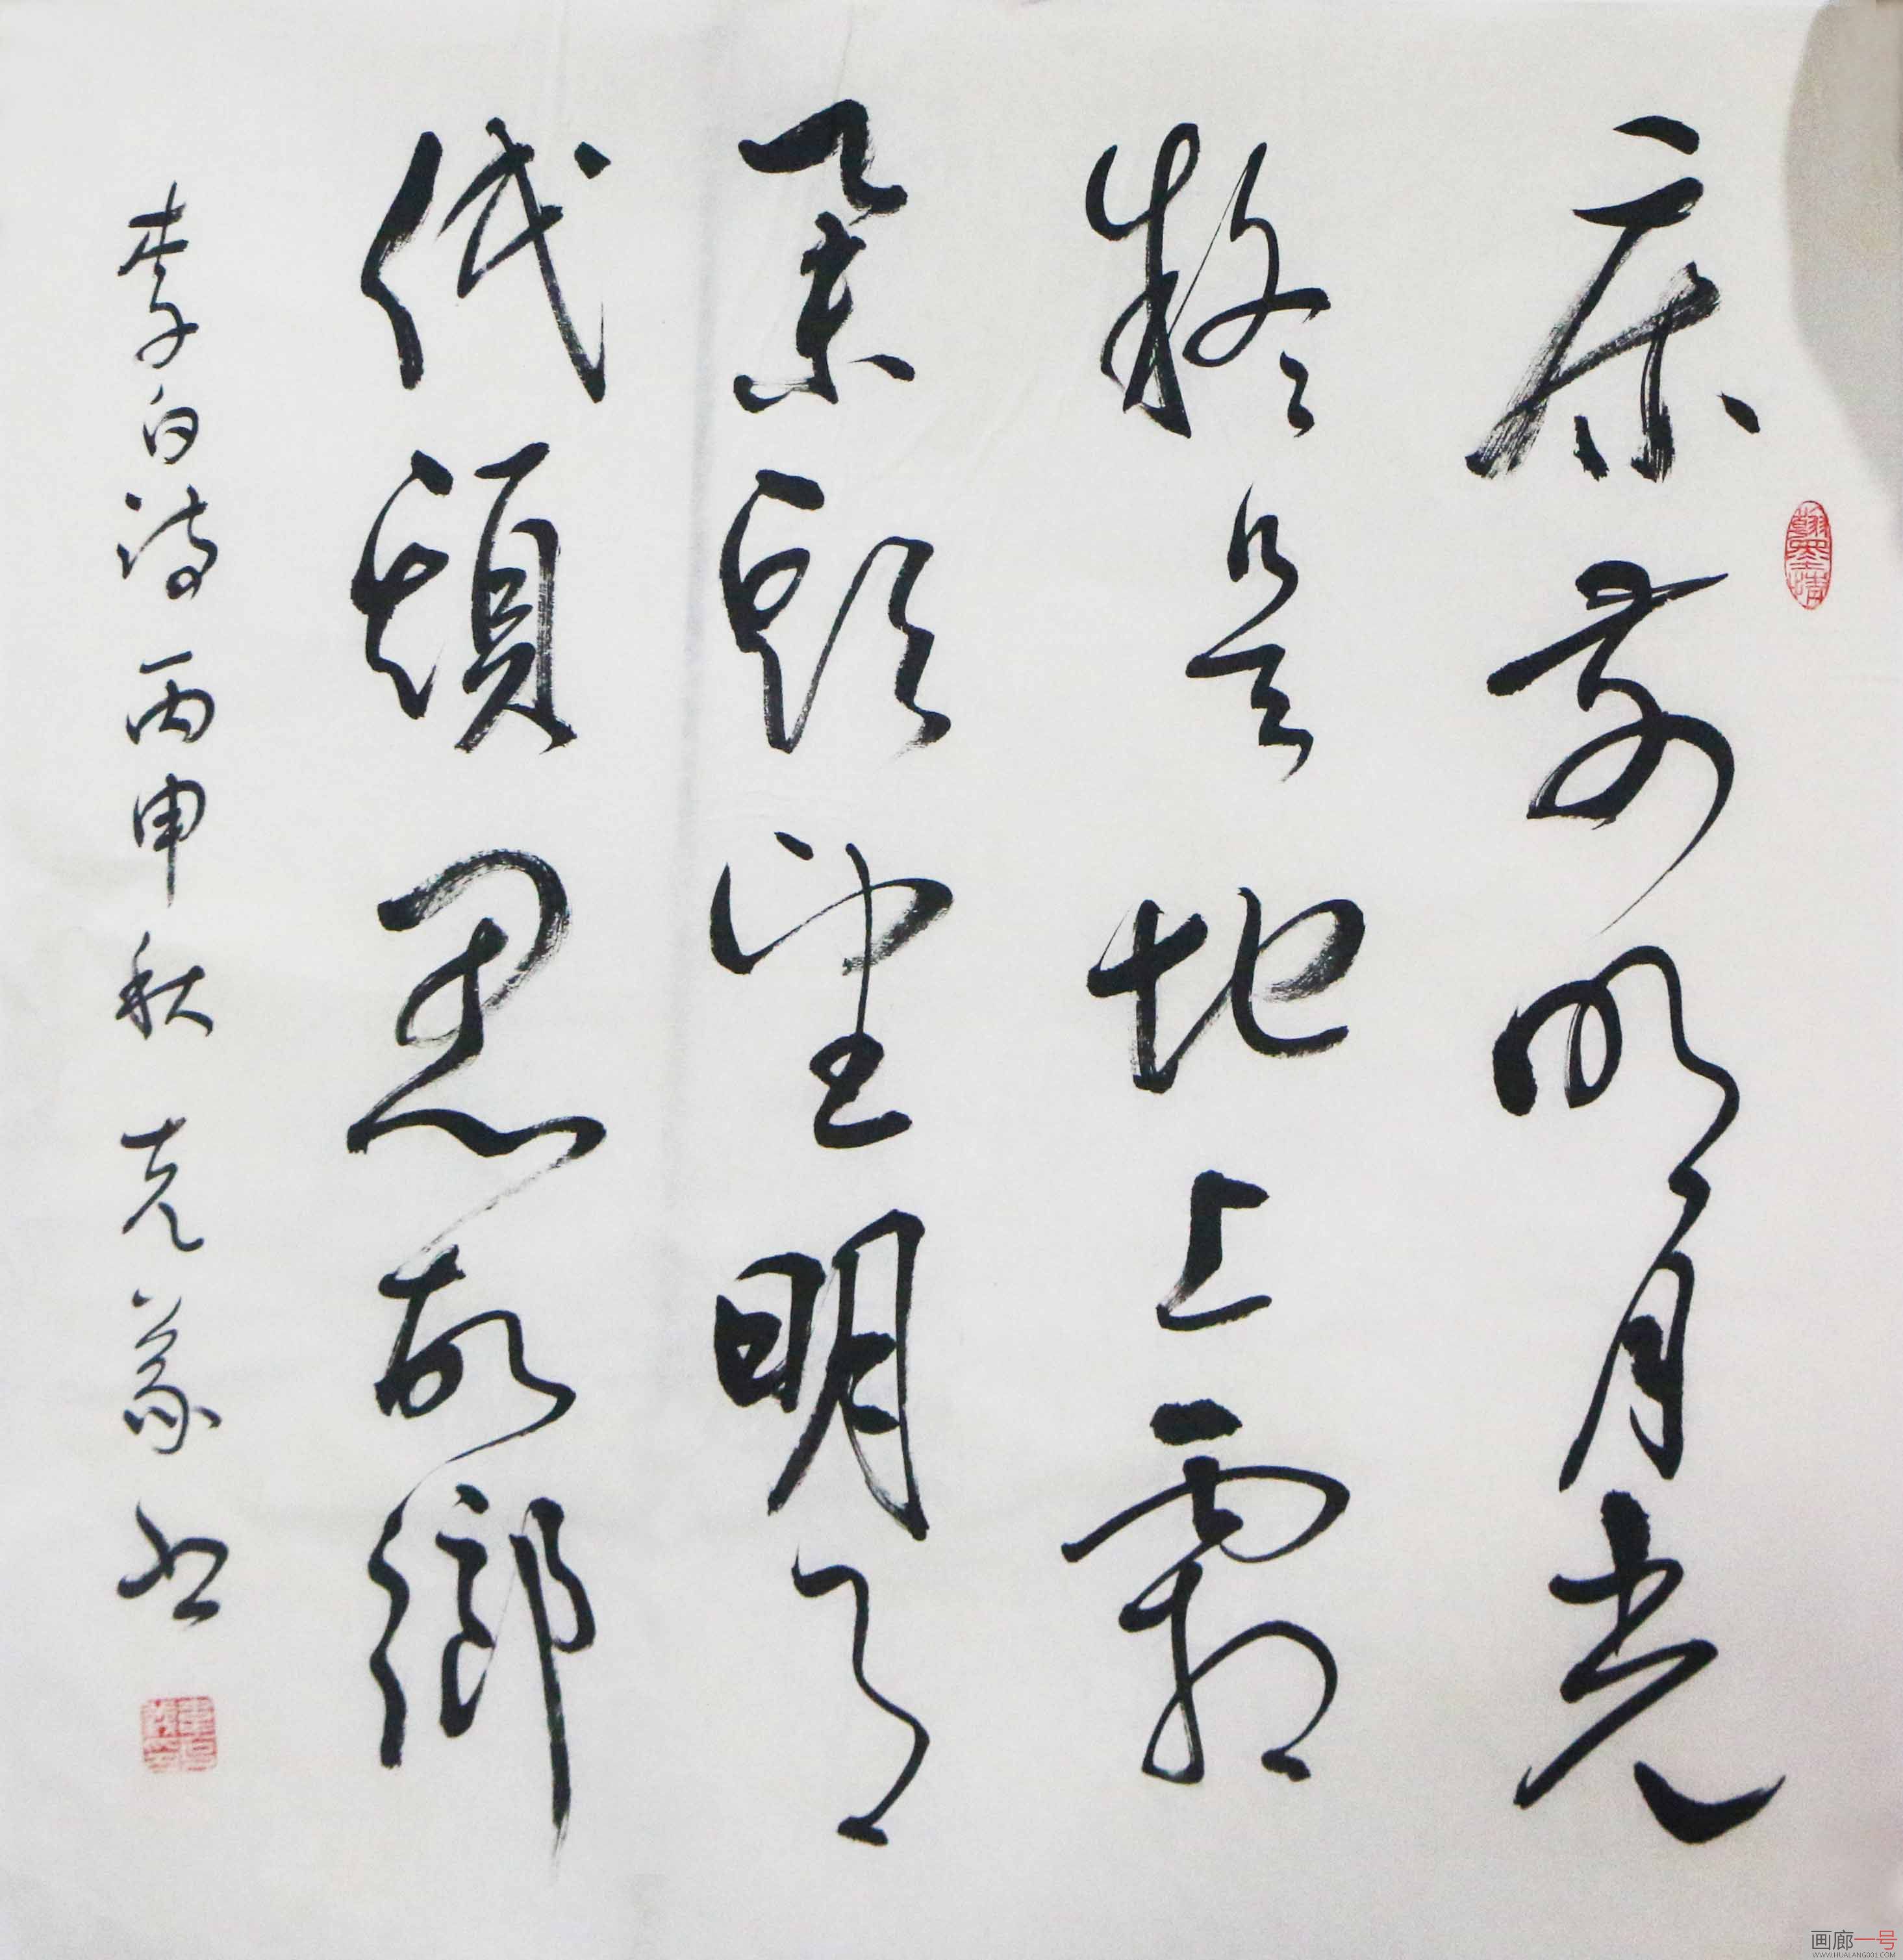 床前明月光
疑是地上霜
舉頭望明月
低頭思故鄉
李白诗 丙申秋 克 书
翰墨情
画廊一号
WWW.HUALANG001.COM